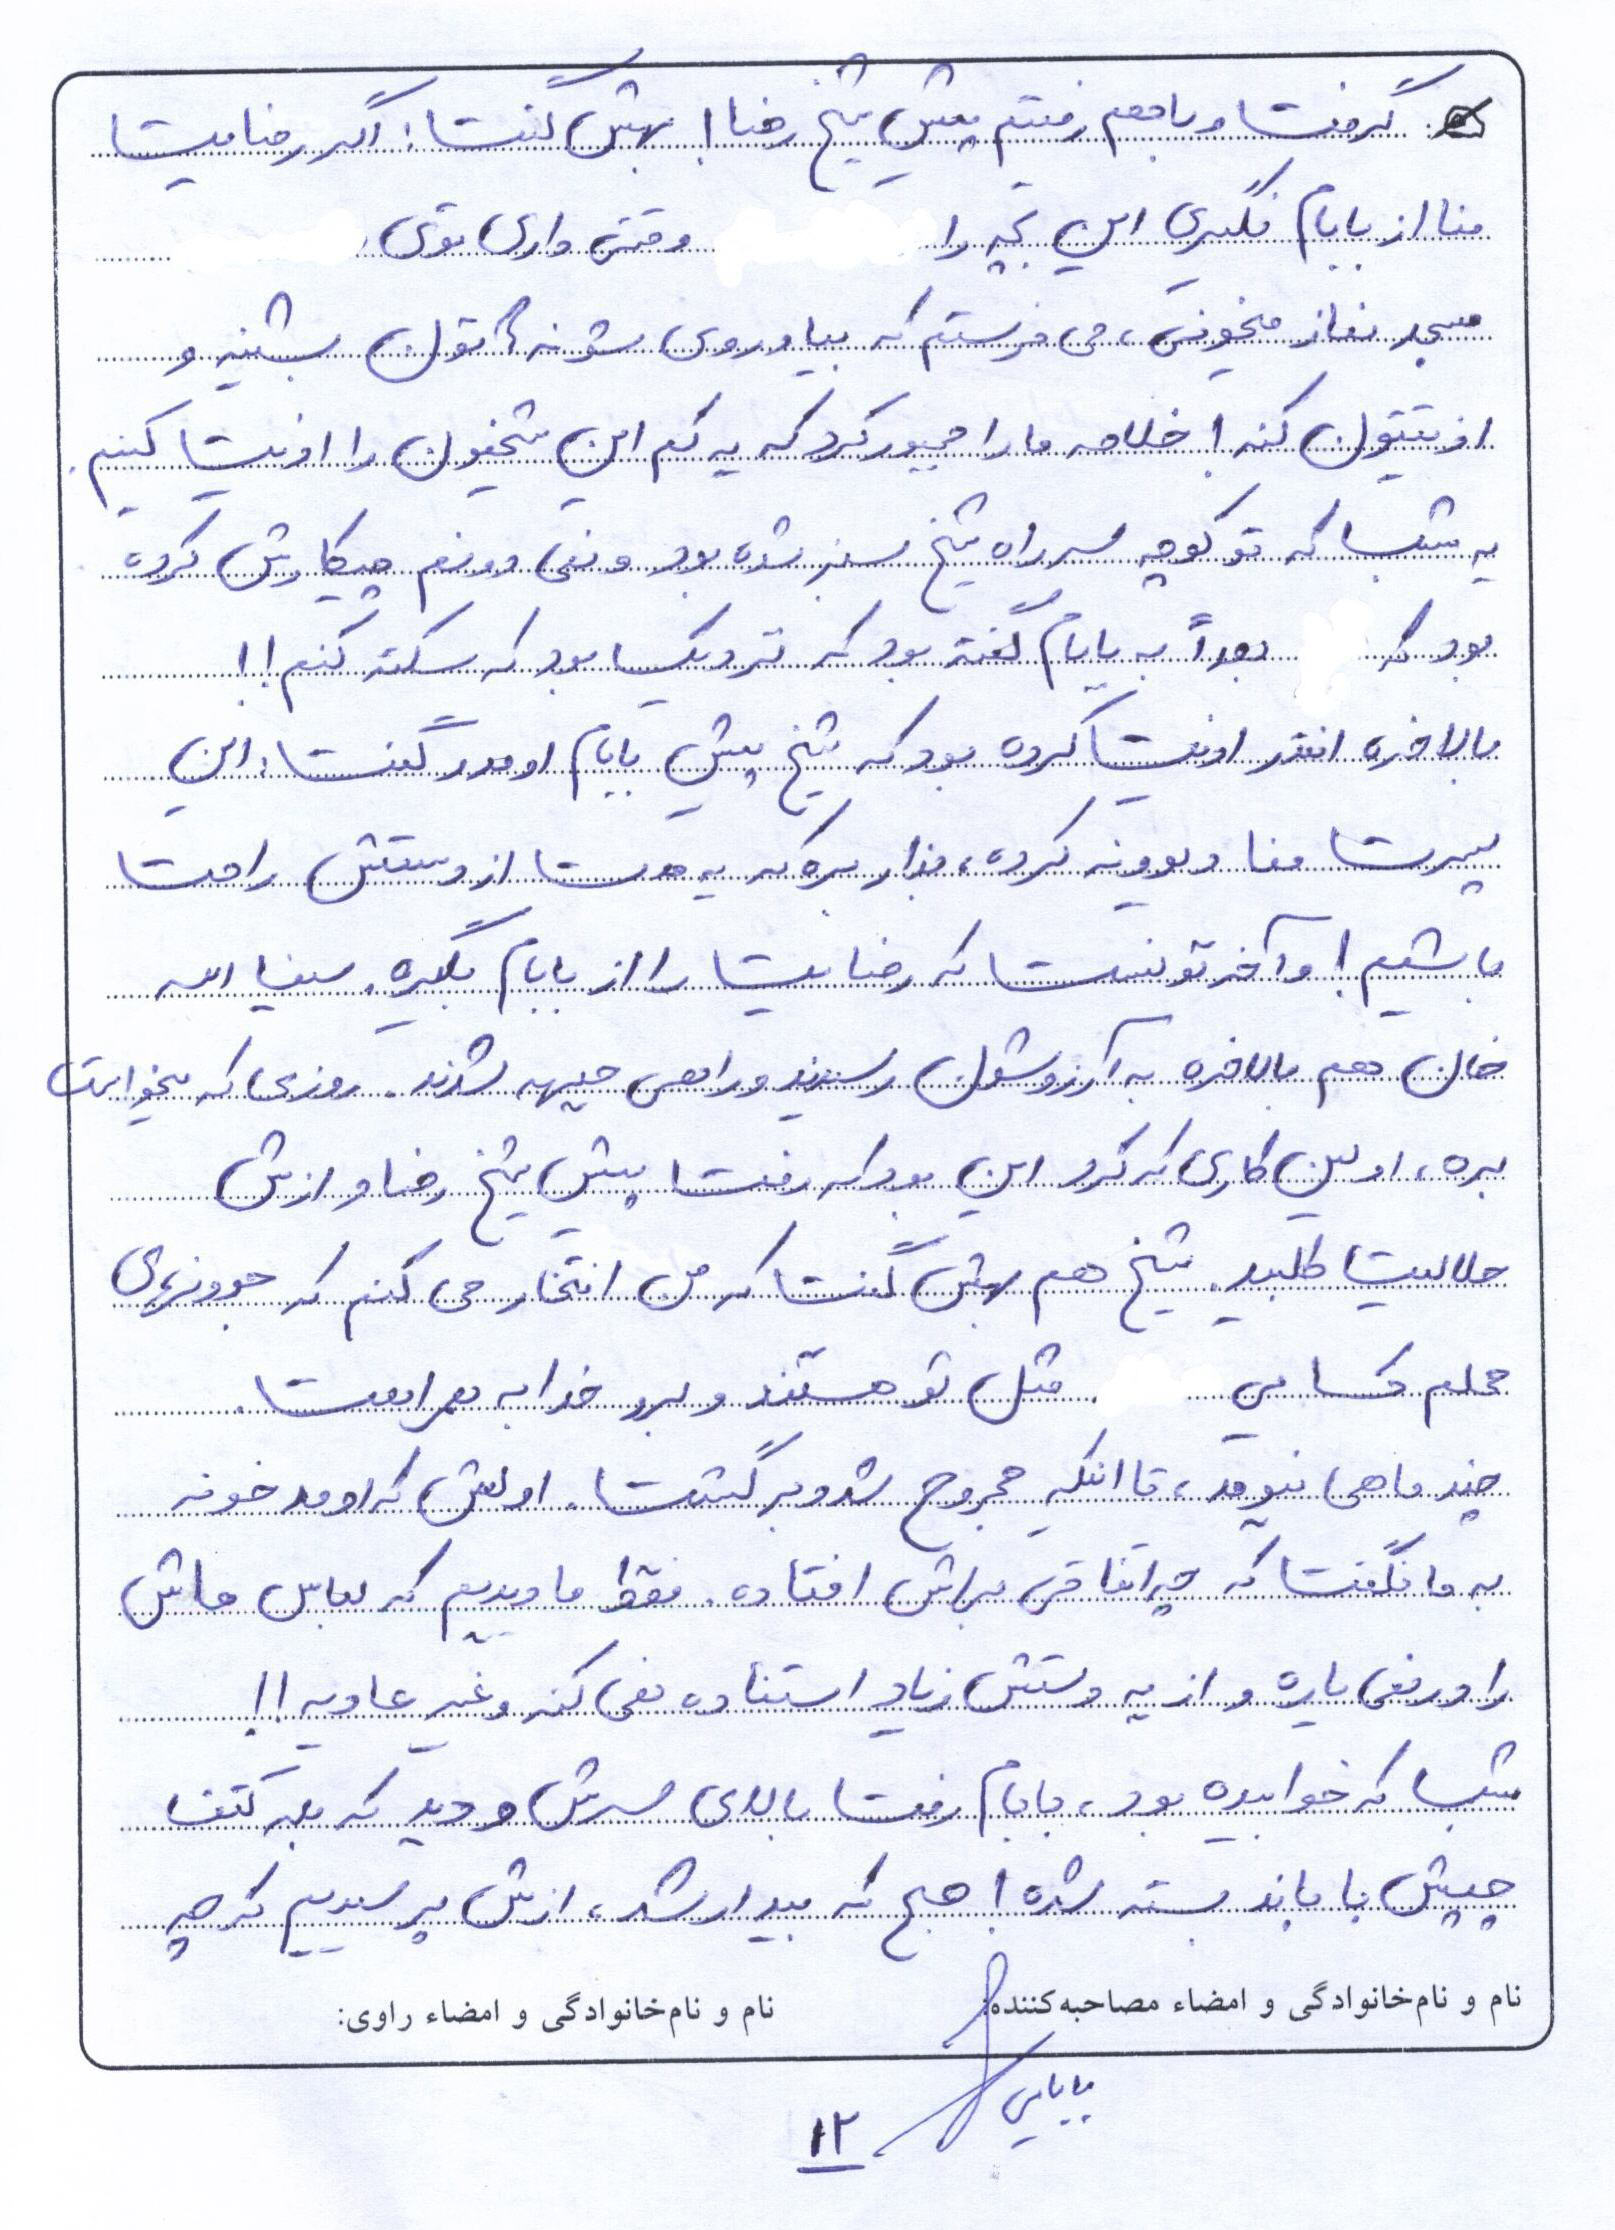 گرفت و باهم رفتیم پیش شیخ رضا! بهش گفت: اگر رضایت
منا از بابام نگیری این بچه را وقتی داری توی
مسجد نماز میخونی، می فرستم که بیاد روی شونه هاتون بشینه و
اذیتتون کنه! خلاصه ما را مجبور کرد که یه کم این شیخون را اذیت کنیم.
یه شب که تو کوچه سر راه شیخ سبز شده بود و نمی دونم چیکارش کرده
بود که بعداً به بابام گفته بود که نزدیک بود که سکته کنم!!
بالاخره انقدر اذیت کرده بود که شیخ پیش بابام اومد و گفت: این
پسرت منا دیوونه کرده، بذار بره که یه مدت از دستش راحت
باشیم! و آخر تونست که رضایت را از بابام بگیره. سیف الله
خان هم بالاخره به آرزوشون رسیدند و راهی جبهه شدند. روزی که میخواست
بره، اولین کاری که کرد این بود که رفت پیش شیخ رضا و ازش
حلالیت طلبید. شیخ هم بهش گفت که من افتخار می کنم که جوونهای
محلم کسایی مثل تو هستند و برو خدا به همراهت.
چند ماهی نیومد، تا اینکه مجروح شد و برگشت. اولش که اومد خونه
به ما نگفت که چه اتفاقی براش افتاده. فقط ما دیدیم که لباس هاش
را در نمی یاره و از یه دستش زیاد استفاده نمی کنه و غیر عادیه!!
شب که خوابیده بود، بابام رفت بالای سرش و دید که بله کتف
چپش با باند بسته شده! صبح که بیدار شد، ازش پرسیدیم که چه
نام و نام‌خانوادگی و امضاء مصاحبه‌کننده:
نام و نام‌خانوادگی و امضاء راوی:
بابایی
۱۲